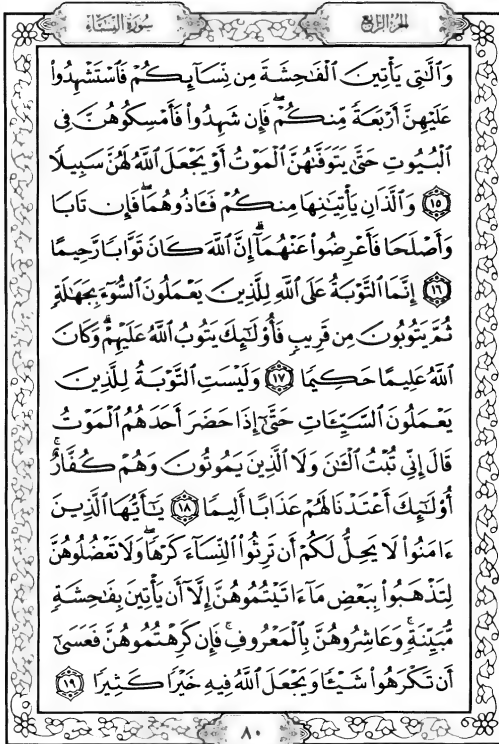 سُورَةُ النِّسَاءِ
الجُزْءُ الرَّابِعُ
وَٱلَّٰتِى يَأْتِينَ ٱلْفَٰحِشَةَ مِن نِّسَآئِكُمْ فَٱسْتَشْهِدُوا۟
عَلَيْهِنَّ أَرْبَعَةً مِّنكُمْ ۖ فَإِن شَهِدُوا۟ فَأَمْسِكُوهُنَّ فِى
ٱلْبُيُوتِ حَتَّىٰ يَتَوَفَّىٰهُنَّ ٱلْمَوْتُ أَوْ يَجْعَلَ ٱللَّهُ لَهُنَّ سَبِيلًا
١٥ وَٱلَّذَانِ يَأْتِيَٰنِهَا مِنكُمْ فَـَٔاذُوهُمَا ۖ فَإِن تَابَا
وَأَصْلَحَا فَأَعْرِضُوا۟ عَنْهُمَآ ۗ إِنَّ ٱللَّهَ كَانَ تَوَّابًا رَّحِيمًا
١٦ إِنَّمَا ٱلتَّوْبَةُ عَلَى ٱللَّهِ لِلَّذِينَ يَعْمَلُونَ ٱلسُّوٓءَ بِجَهَٰلَةٍ
ثُمَّ يَتُوبُونَ مِن قَرِيبٍ فَأُو۟لَٰٓئِكَ يَتُوبُ ٱللَّهُ عَلَيْهِمْ ۗ وَكَانَ
ٱللَّهُ عَلِيمًا حَكِيمًا ١٧ وَلَيْسَتِ ٱلتَّوْبَةُ لِلَّذِينَ
يَعْمَلُونَ ٱلسَّيِّـَٔاتِ حَتَّىٰٓ إِذَا حَضَرَ أَحَدَهُمُ ٱلْمَوْتُ
قَالَ إِنِّى تُبْتُ ٱلْـَٰٔنَ وَلَا ٱلَّذِينَ يَمُوتُونَ وَهُمْ كُفَّارٌ ۚ
أُو۟لَٰٓئِكَ أَعْتَدْنَا لَهُمْ عَذَابًا أَلِيمًا ١٨ يَٰٓأَيُّهَا ٱلَّذِينَ
ءَامَنُوا۟ لَا يَحِلُّ لَكُمْ أَن تَرِثُوا۟ ٱلنِّسَآءَ كَرْهًا ۖ وَلَا تَعْضُلُوهُنَّ
لِتَذْهَبُوا۟ بِبَعْضِ مَآ ءَاتَيْتُمُوهُنَّ إِلَّآ أَن يَأْتِينَ بِفَٰحِشَةٍ
مُّبَيِّنَةٍ ۚ وَعَاشِرُوهُنَّ بِٱلْمَعْرُوفِ ۚ فَإِن كَرِهْتُمُوهُنَّ فَعَسَىٰٓ
أَن تَكْرَهُوا۟ شَيْـًٔا وَيَجْعَلَ ٱللَّهُ فِيهِ خَيْرًا كَثِيرًا ١٩
٨٠